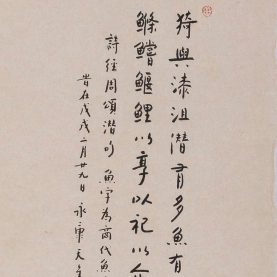 猗與漆沮潛有多魚有
鰷鱨鰋鯉以享以祀以介
詩經周頌潛句 魚字為商代魚
岁在戊戌二月廿九日 永康天